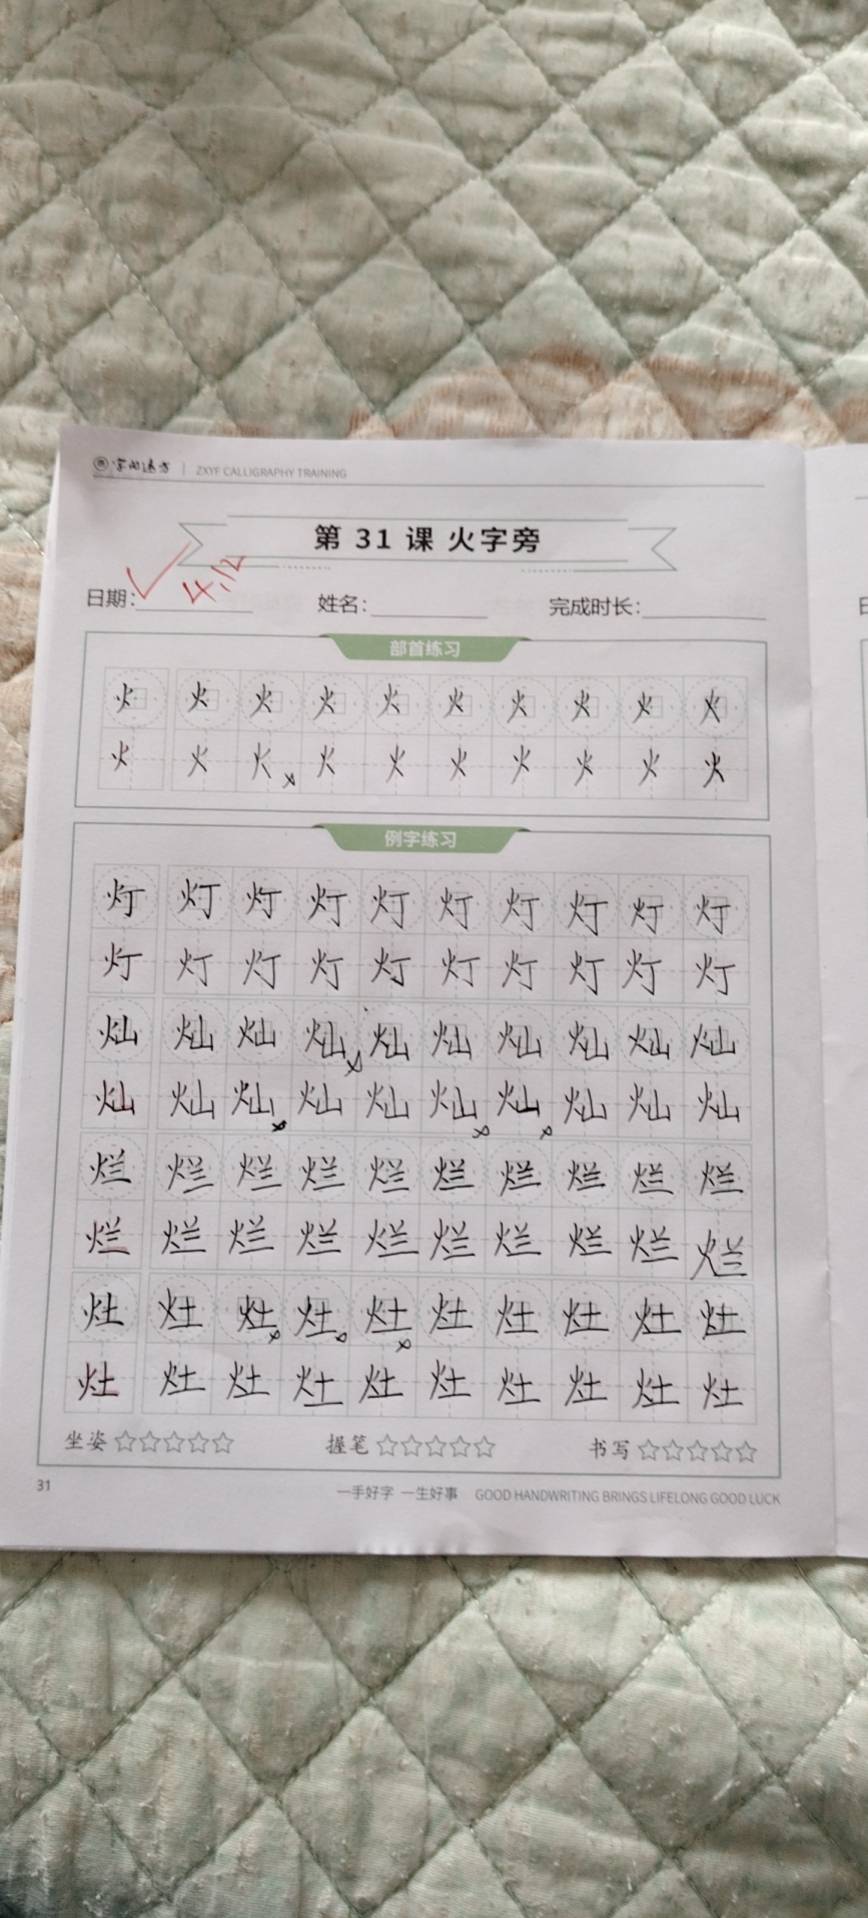 字向远方 | ZXYF CALLIGRAPHY TRAINING
第 31 课 火字旁
日期: 4.12 姓名: 完成时长:
部首练习
火 火 火 火 火 火 火 火 火 火
火 火 火 火 火 火 火 火 火 火
例字练习
灯 灯 灯 灯 灯 灯 灯 灯 灯 灯
灯 灯 灯 灯 灯 灯 灯 灯 灯 灯
灿 灿 灿 灿 灿 灿 灿 灿 灿 灿
灿 灿 灿 灿 灿 灿 灿 灿 灿 灿
烂 烂 烂 烂 烂 烂 烂 烂 烂 烂
烂 烂 烂 烂 烂 烂 烂 烂 烂 烂
灶 灶 灶 灶 灶 灶 灶 灶 灶 灶
灶 灶 灶 灶 灶 灶 灶 灶 灶 灶
坐姿☆☆☆☆☆ 握笔☆☆☆☆☆ 书写☆☆☆☆☆
31 一手好字 一生好事 GOOD HANDWRITING BRINGS LIFELONG GOOD LUCK